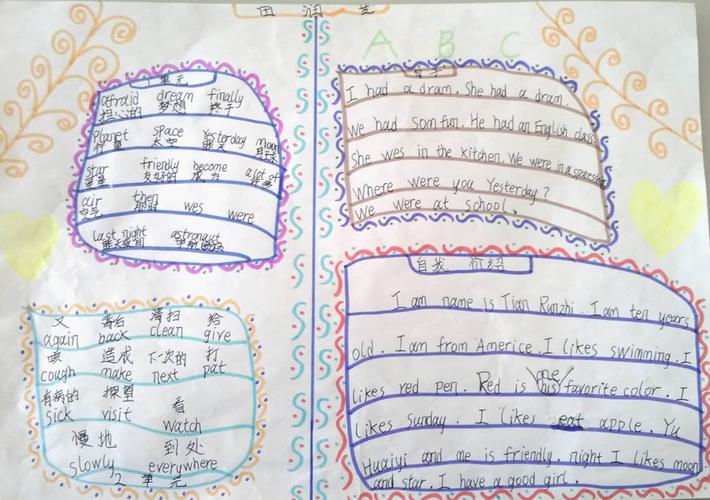 田润芝
A B C
1单元
afraid dream finally
担心的 梦想 终于
Planet space Yesterday moon
行星 太空 昨天 月球
star friendly become a lot of
星星 友好的 成为 许多
air then wes were
空气 那时
last night astronaut
昨天夜间 宇航员
又 背后 清扫 给
again back clean give
咳 造成 下一次的 打
cough make next pat
有病的 探望 看
sick visit watch
慢地 到处
slowly everywhere
2单元
句子
I had a dram. She had a dram.
We had som fun. He had an English class.
She wes in the kitchen. We were in a
Where were you Yesterday?
We were at school.
自我介绍
I am name is Tian Runzhi. I am ten years
old. I am from Americe. I likes swimming. I
likes red pen. Red is favorite color. I
likes sunday. I likes eat apple. Yu
Huaiyi and me is friendly. night I likes moon
and star. I have a good girl.